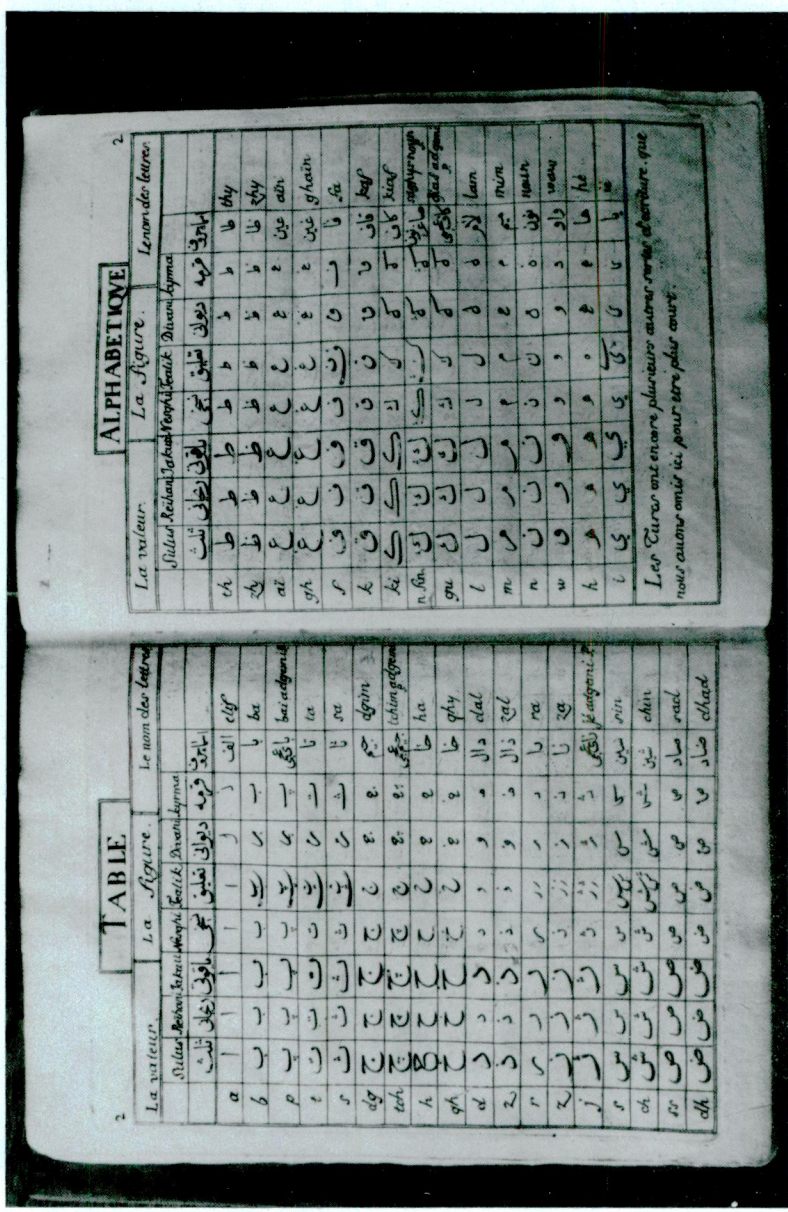 2
TABLE
La valeur. La figure. Le nom des lettres
Sulus Reihani Jakuti Neschi Tealik Divani kyrma
ثلث ریحانی یاقوتی نسخی تعلیق دیوانی قرمه
a ا ا ا ا ا ا ا الف elif
b ب ب ب ب ب ب ب با ba
p پ پ پ پ پ پ پ bai adgemi
t ت ت ت ت ت ت ت تا ta
s ث ث ث ث ث ث ث ثا sa
dg ج ج ج ج ج ج ج جیم dgim
tch چ چ چ چ چ چ چ tchim adgemi
h ح ح ح ح ح ح ح حا ha
gh خ خ خ خ خ خ خ خا ghy
d د د د د د د د دال dal
z ذ ذ ذ ذ ذ ذ ذ ذال zal
r ر ر ر ر ر ر ر را ra
z ز ز ز ز ز ز ز زا za
j ژ ژ ژ ژ ژ ژ ژ adgemi
s س س س س س س س سین sin
ch ش ش ش ش ش ش ش شین chin
ss ص ص ص ص ص ص ص صاد sad
dh ض ض ض ض ض ض ض ضاد dhad
2
ALPHABETIQVE
La valeur. La figure. Le nom des lettres
Sulus Reihani Jakuti Neschi Tealik Divani kyrma
ثلث ریحانی یاقوتی نسخی تعلیق دیوانی قرمه
th ط ط ط ط ط ط ط طا thy
zh ظ ظ ظ ظ ظ ظ ظ ظا zhy
ai ع ع ع ع ع ع ع عین ain
gh غ غ غ غ غ غ غ غین ghain
f ف ف ف ف ف ف ف فا fa
k ق ق ق ق ق ق ق قاف kaf
ki ك ك ك ك ك ك ك کاف kiaf
n ڭ ڭ ڭ ڭ ڭ ڭ ڭ
gu ك ك ك ك ك ك ك adgemi
l ل ل ل ل ل ل ل لام lam
m م م م م م م م میم mim
n ن ن ن ن ن ن ن نون noun
w و و و و و و و واو waw
h ه ه ه ه ه ه ه ها hé
i ي ي ي ي ي ي ي یا ïé
Les Turcs ont encore plusieurs autres sortes d'ecriture, que
nous auons omis ici pour etre plus court.